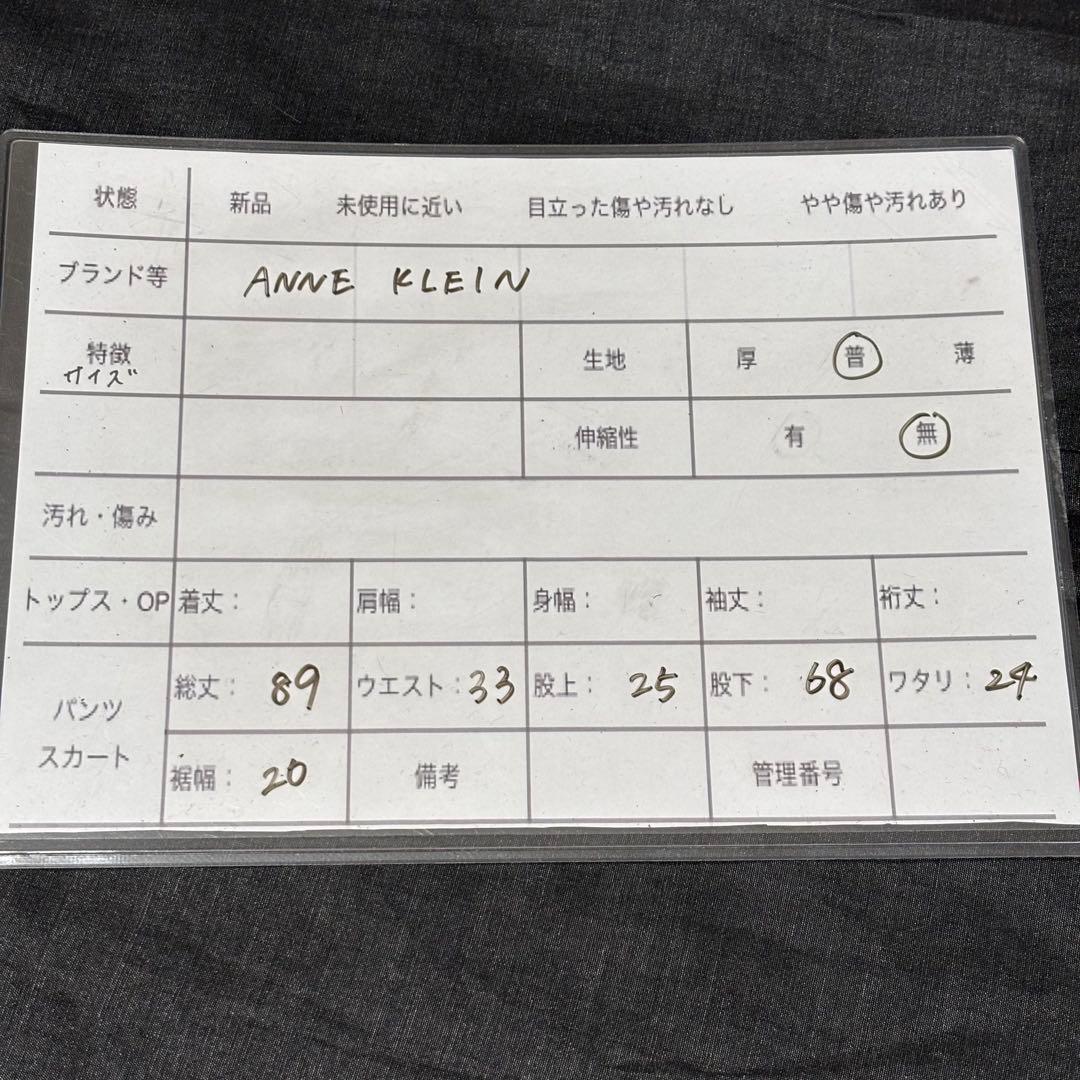 状態 新品 未使用に近い 目立った傷や汚れなし やや傷や汚れあり
ブランド等 ANNE KLEIN
特徴 生地 厚 普 薄
サイズ
伸縮性 有 無
汚れ・傷み
トップス・OP 着丈： 肩幅： 身幅： 袖丈： 裄丈：
パンツ スカート 総丈： 89 ウエスト：33 股上： 25 股下： 68 ワタリ：24
裾幅： 20 備考 管理番号